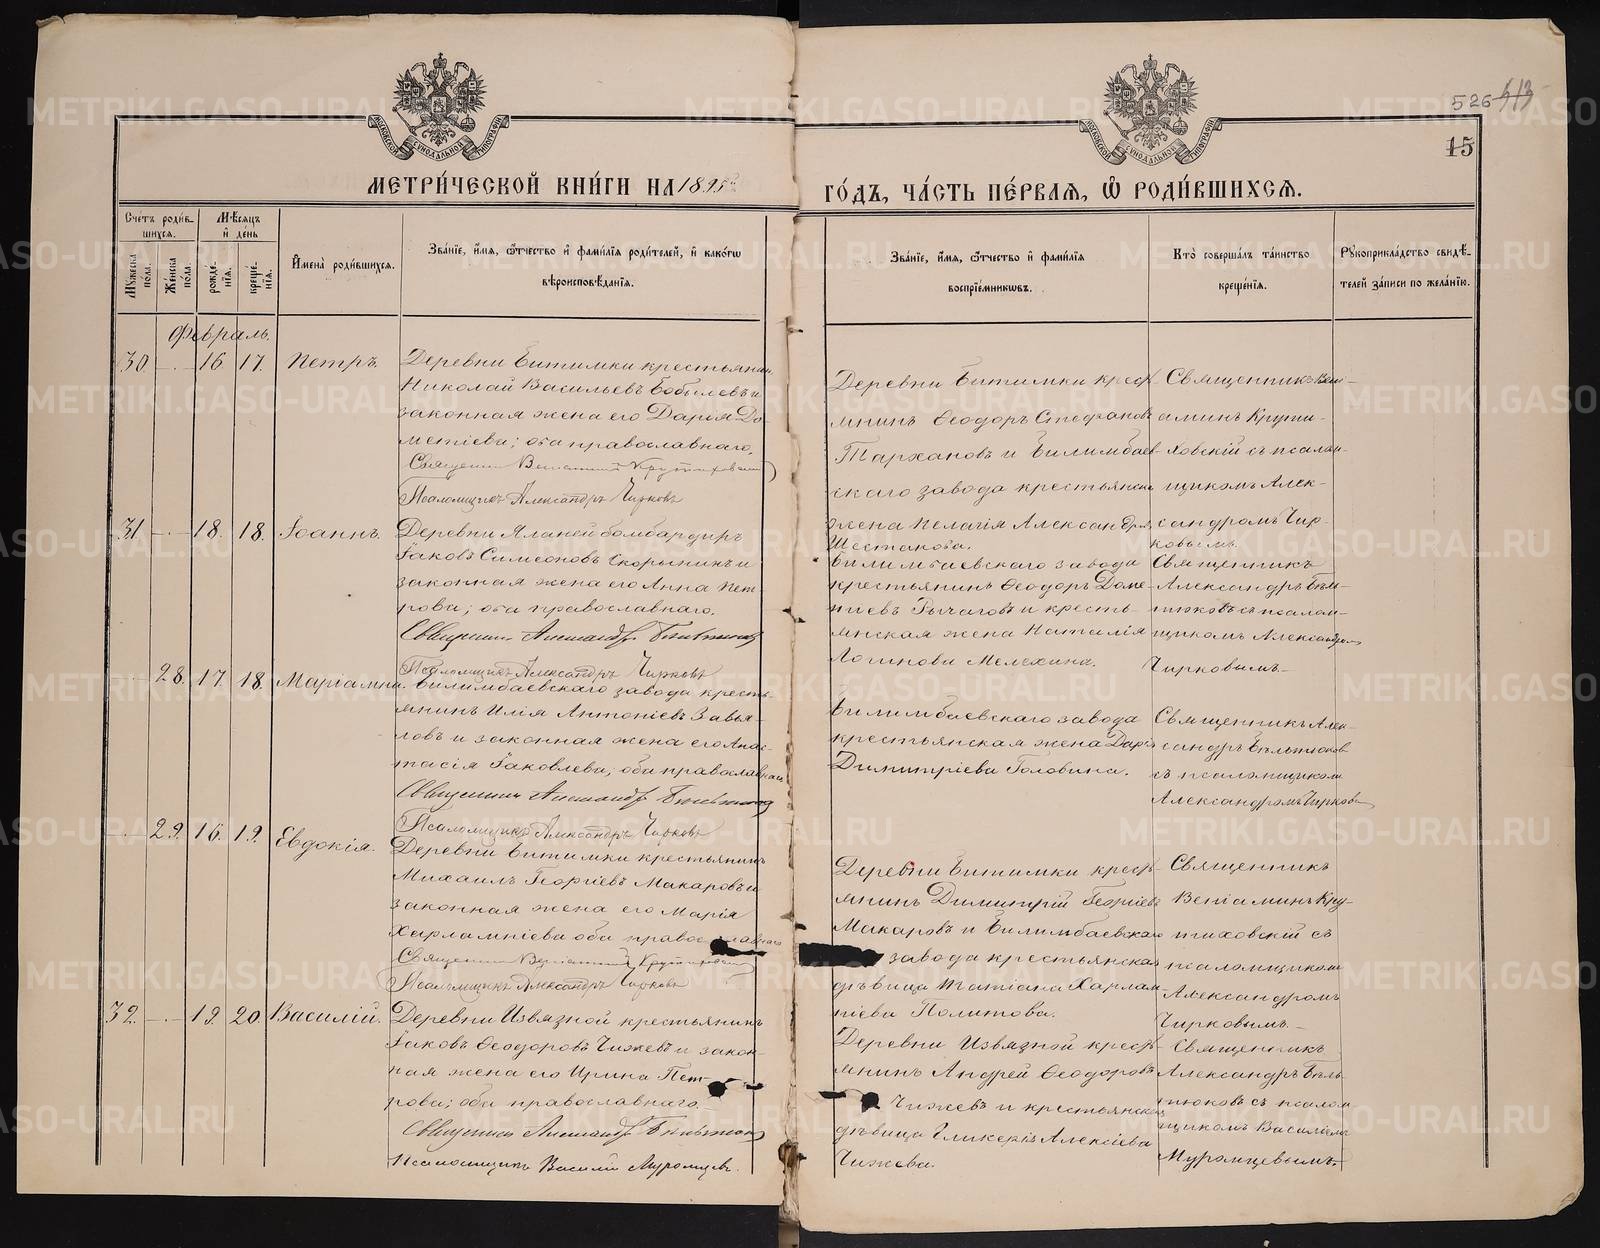 526 513
15
МЕТРИ́ЧЕСКОЙ КНИ́ГИ НА 1895й
ГО́ДЪ, ЧА́СТЬ ПЕ́РВАЯ, Ѿ РОДИ́ВШИХСЯ.
Сче́тъ роди́в-
шихся.
Мѣ́сяцъ
и҆ де́нь
Мꙋ́жеска
по́ла.
Же́нска
по́ла.
рожде́-
нїя.
креще́-
нїя.
И҆мена̀ роди́вшихся.
Зва́нїе, и҆́мя, ѻ҆́тчество и҆ фами́лїя роди́телей, и҆ како́гѡ
вѣроисповѣ́данїя.
Зва́нїе, и҆́мя, ѻ҆́тчество и҆ фами́лїя
воспрїе́мникѡвъ.
Кто̀ соверша́лъ та́инство
креще́нїя.
Рꙋкоприкла́дство свидѣ́-
телей за́писи по жела́нїю.
Февраль.
30 — 16 17. Петръ.
Деревни Битимки крестьянин
Николай Васильевъ Бобылевъ и
законная жена его Дарія До-
метіева; оба православнаго.
Священник Веніамин Крутиховский
Псаломщикъ Александръ Чирковъ
Деревни Битимки крест-
янинъ Ѳеодоръ Стефановъ
Тархановъ и Билимбаев-
скаго завода крестьянска
жена Пелагія Александра
Шестакова.
Священникъ Вені-
аминъ Крути-
ховскій съ псалом-
щикомъ Алек-
сандромъ Чир-
ковымъ.
31 — 18. 18. Іоаннъ.
Деревни Яланей бомбардиръ
Іаковъ Симеоновъ Скорынинъ и
законная жена его Анна Пет-
рова; оба православнаго.
Священник Александр Бѣльтюков
Псаломщикъ Александръ Чирковъ
Билимбаевскаго завода
крестьянинъ Ѳеодоръ Доме-
тіевъ Рычаговъ и кресть-
янская жена Наталія
Логинова Мелехина.
Священникъ
Александръ Бѣль-
тюковъ съ псалом-
щикомъ Александром
Чирковымъ.
— 28. 17. 18. Маріамна.
Билимбаевскаго завода кресть-
янинъ Илія Антоніевъ Завья-
ловъ и законная жена его Анас-
тасія Іаковлева; оба православнаго
Священник Александр Бѣльтюков
Псаломщикъ Александръ Чирковъ
Билимбаевскаго завода
крестьянская жена Дарія
Димитріева Головина.
Священникъ Алек-
сандръ Бѣльтюков
съ псаломщиком
Александромъ Чирков
— 29. 16. 19. Евдокія.
Деревни Битимки крестьянинъ
Михаилъ Георгіевъ Макаровъ и
законная жена его Марія
Харлампіева оба православнаго
Священник Веніамин Крутиховский
Псаломщикъ Александръ Чирковъ
Деревни Битимки крест-
янинъ Димитрій Георгіевъ
Макаровъ и Билимбаевскаго
завода крестьянская
дѣвица Татіана Харлам-
піева Политова.
Священникъ
Веніаминъ Кру-
тиховскій съ
псаломщиком
Александромъ
Чирковымъ.
32. — 19. 20. Василій.
Деревни Извязной крестьянинъ
Іаковъ Ѳеодоровъ Чижевъ и закон-
ная жена его Ирина Пет-
рова; оба православнаго.
Священник Александр Бѣльтюков
Псаломщикъ Василій Муромцевъ.
Деревни Извязной крест-
янинъ Андрей Ѳеодоровъ
Чижевъ и крестьянская
дѣвица Гликерія Алексіева
Чижева.
Священникъ
Александръ Бѣль-
тюковъ съ псалом-
щикомъ Василіемъ
Муромцевымъ.